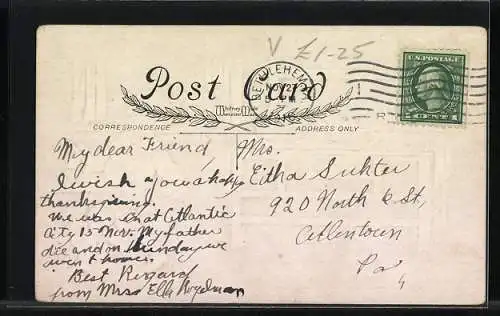 V £1-25
U.S. POSTAGE
BETHLEHEM
Post Card
CORRESPONDENCE
ADDRESS ONLY
My dear Friend,
I wish you a happy
thanksgiving.
We was at Atlantic
City 15 Nov. My father
die and on Sunday we
went home.
Best Regard
from Mrss Ella
Mrs.
Suhter
920 North 6 St,
Allentown
Pa